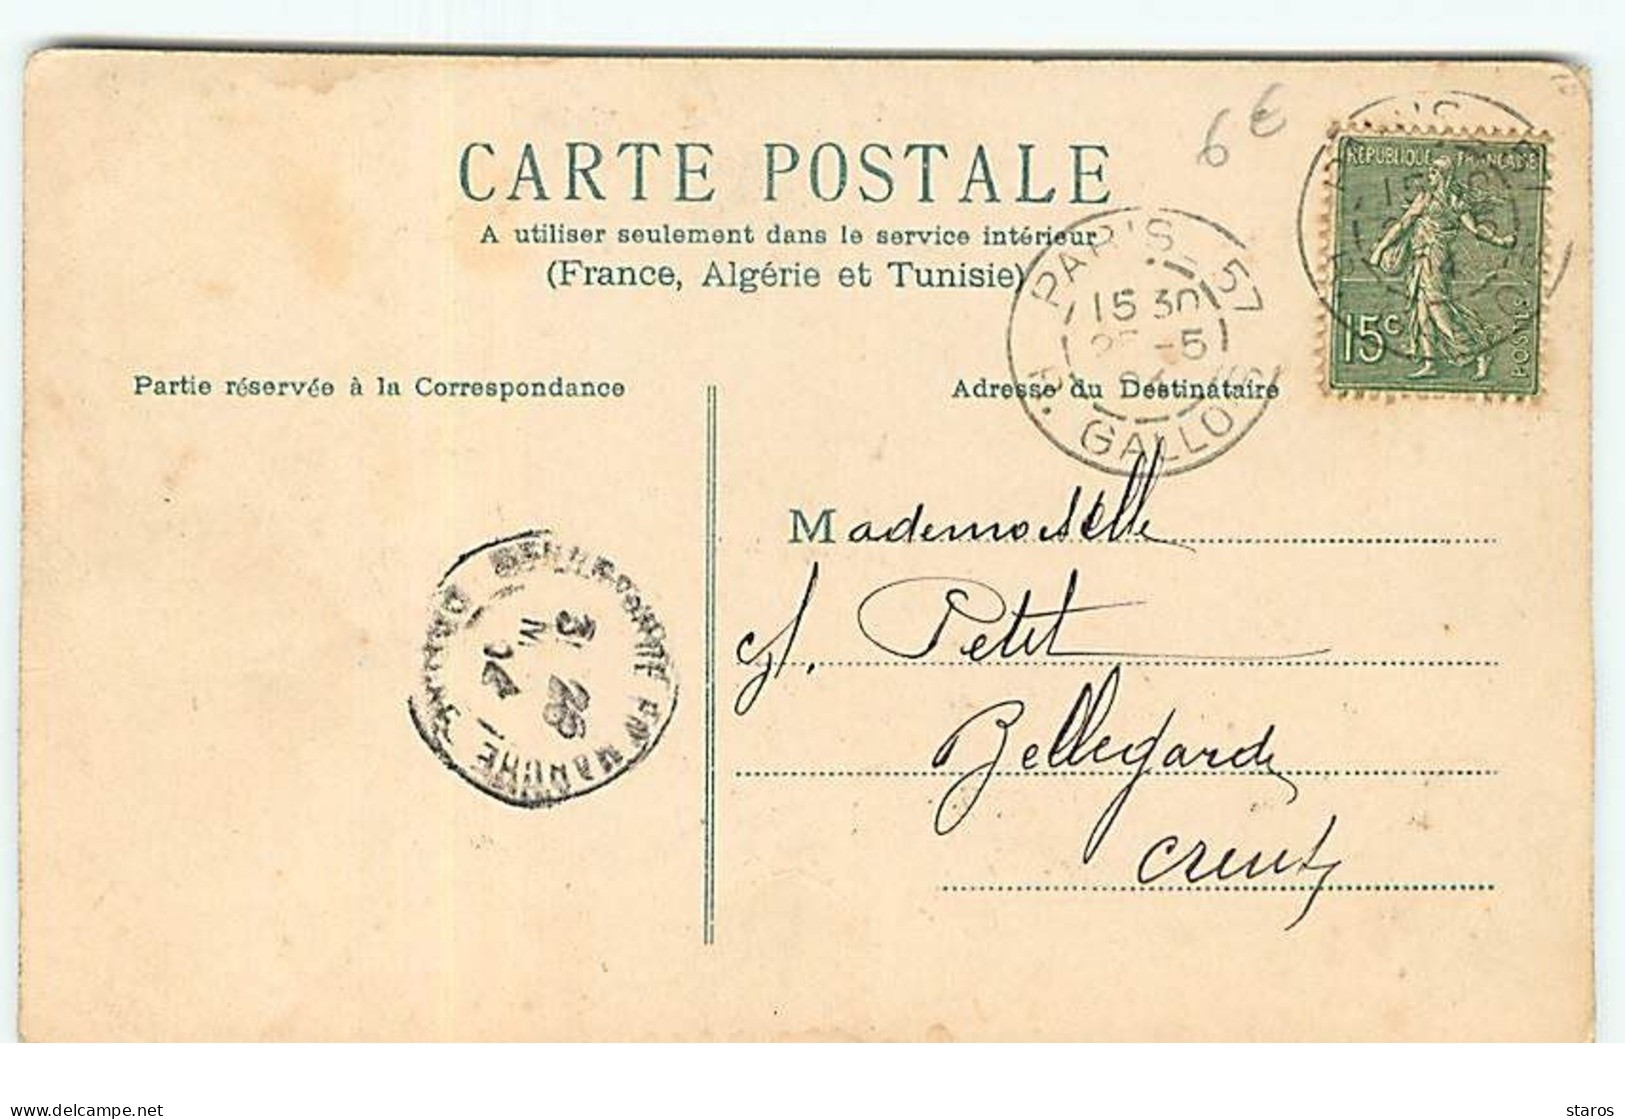 6€
CARTE POSTALE
A utiliser seulement dans le service intérieur
(France, Algérie et Tunisie)
RÉPUBLIQUE FRANÇAISE
15c
POSTES
PARIS 57
15 30
25 -5
04
R. GALLOIS
Partie réservée à la Correspondance
Adresse du Destinataire
Mademoiselle
Petit
Bellegarde
Creuse
BELLEGARDE EN MARCHE
3
26
04
delcampe.net
staros